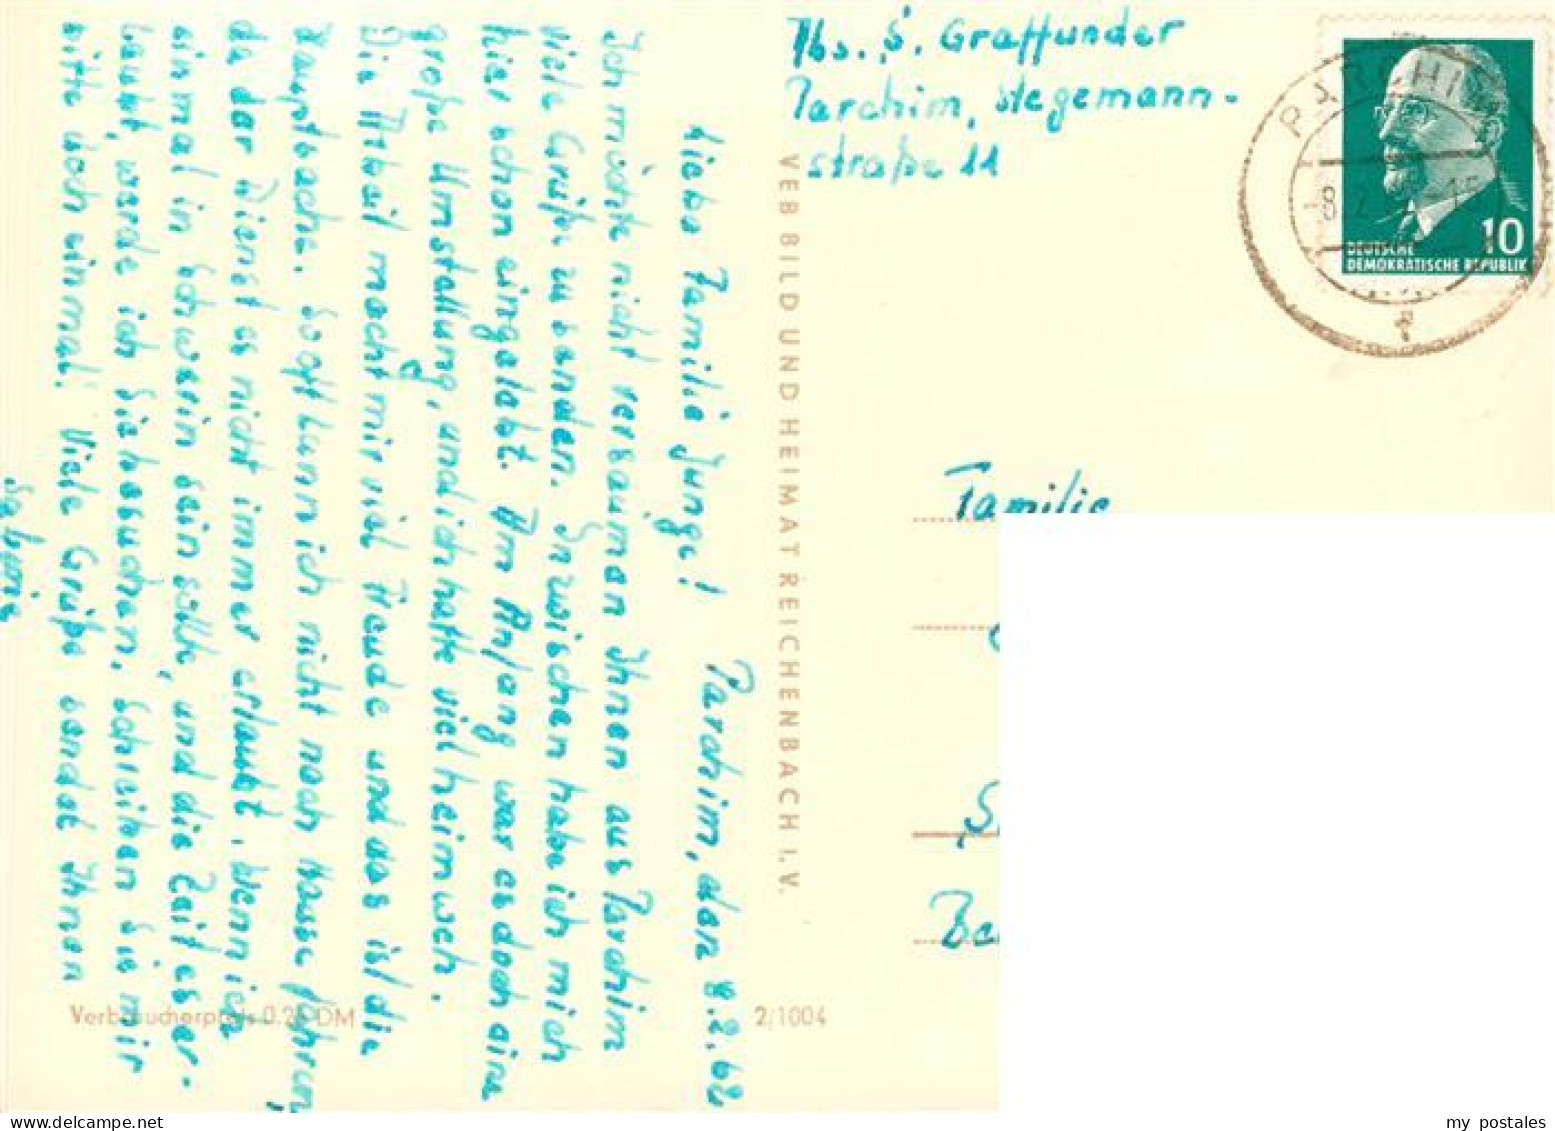 Abs. S. Graffunder
Parchim, Stegemann-
straße 11
PARCHIM
10
DEUTSCHE
DEMOKRATISCHE REPUBLIK
Parchim, den 8.2.62
Liebe Familie Junge!
Ich möchte nicht versäumen Ihnen aus Parchim
viele Grüße zu senden. Inzwischen habe ich mich
hier schon eingelebt. Am Anfang war es doch eine
große Umstellung, und ich hatte viel Heimweh.
Die Arbeit macht mir viel Freude und das ist die
Hauptsache. So oft kann ich nicht nach Hause fahren,
da der Dienst es nicht immer erlaubt. Wenn ich
einmal in Schwerin sein sollte, und die Zeit es er-
laubt, werde ich Sie besuchen. Schreiben Sie mir
bitte doch einmal. Viele Grüße sendet Ihnen
Sabine
VEB BILD UND HEIMAT REICHENBACH I. V.
Familie
Verbraucherpreis 0.25 DM
2/1004
my postales